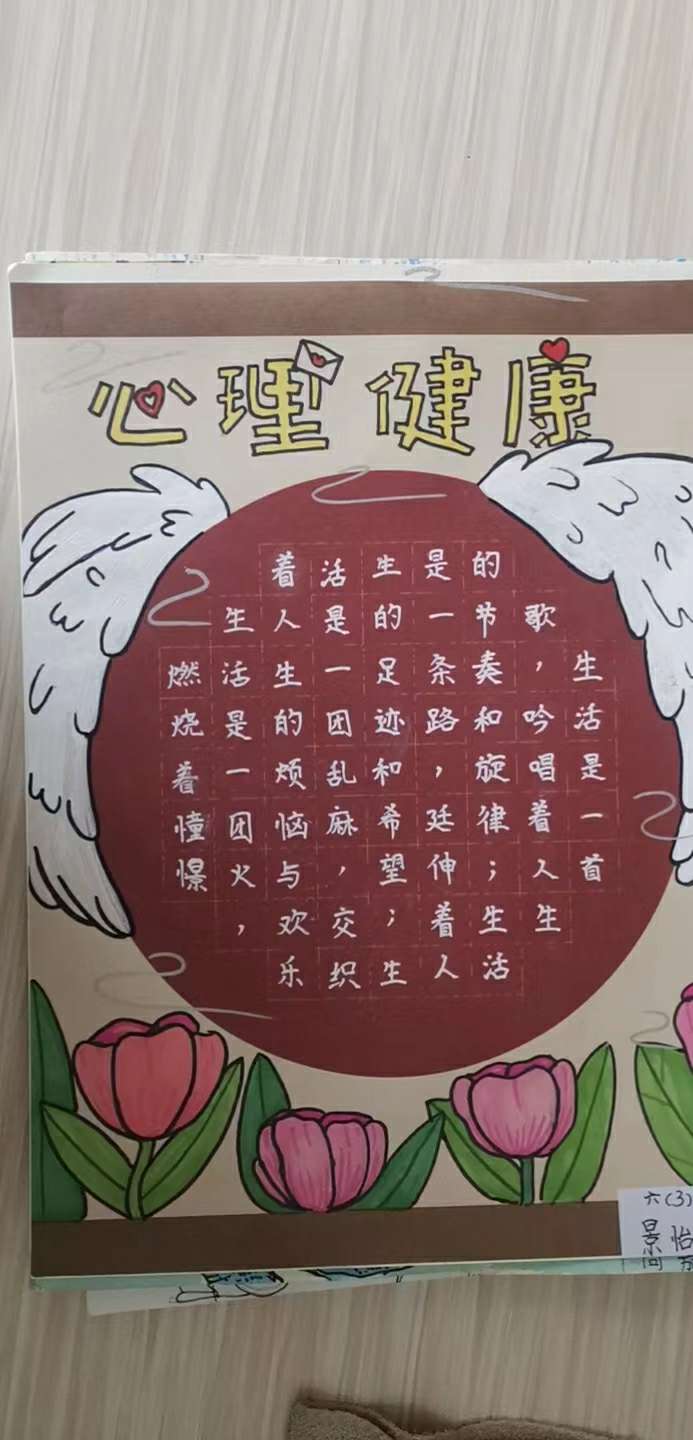 心理健康
生活是一首
歌，吟唱着人生
的节奏和旋律；生活
是一条路，廷伸着人
生的足迹和希望；生
活是一团乱麻，交织
着人生的烦恼与欢乐
生活是一团火，
燃烧着憧憬
六(3)
景怡